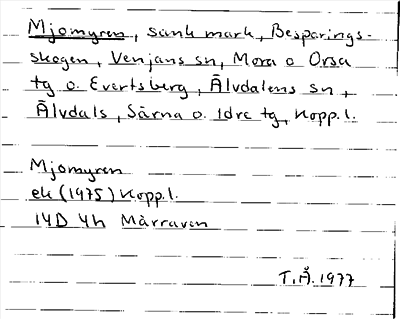 Mjomyren, sank mark, Besparings-
skogen, Venjans sn, Mora o Orsa
tg o. Evertsberg, Älvdalens sn,
Älvdals, Särna o. Idre tg, Kopp.l.
Mjomyren
ek (1975) Kopp.l.
14D 4h Mårraven
T.Å. 1977